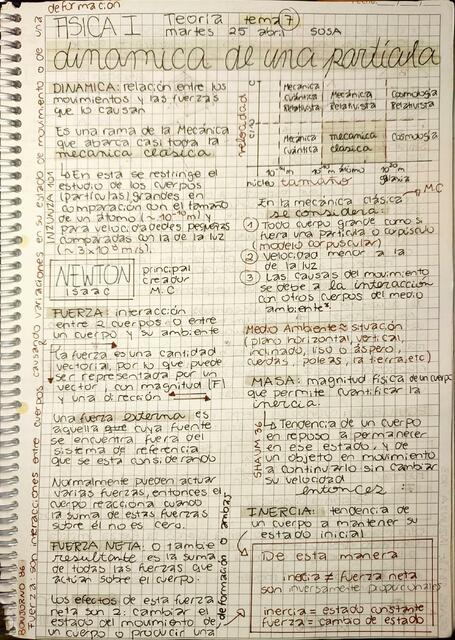 deformación
FISICA I
Teoría tema 7
martes 25 abril SOSA
dinamica de una particula
DINAMICA: relación entre los
movimientos y las fuerzas
que lo causan
Es una rama de la Mecánica
que abarca casi toda la
mecanica clasica
↳ En esta se restringe el
estudio de los cuerpos
(partículas) grandes en
comparación con el tamaño
de un átomo (~ 10⁻¹⁰ m) y
para velocidades pequeñas
comparadas con la de la luz
(~ 3x10⁸ m/s).
NEWTON
ISAAC
principal
creador
M.C
FUERZA: interacción
entre 2 cuerpos o entre
un cuerpo y su ambiente
La fuerza es una cantidad
vectorial, por lo que puede
ser representada por un
vector, con magnitud |F|
y una dirección
Una fuerza externa es
aquella que cuya fuente
se encuentra fuera del
sistema de referencia
que se esta considerando
Normalmente pueden actuar
varias fuerzas, entonces el
cuerpo reacciona cuando
la suma de estas fuerzas
sobre él no es cero.
FUERZA NETA: o tambie
resultante es la suma
de todas las fuerzas que
actúan sobre el cuerpo.
Los efectos de esta fuerza
neta son 2: cambiar el
estado del movimiento de
un cuerpo o producir una
deformación o ambas
velocidad
Mecánica Cuántica Relativista
Mecánica Relativista
Cosmología Relativista
Mecánica Cuántica
mecanica clasica
Cosmología
núcleo tamaño átomo galaxia
En la mecánica clásica → M.C
se considera:
① Todo cuerpo grande como si
fuera una partícula o corpúsculo
(modelo corpuscular)
② Velocidad menor a la
de la luz
③ Las causas del movimiento
se debe a la interacción
con otros cuerpos del medio
ambiente*.
Medio Ambiente ≈ situación
(plano horizontal, vertical,
inclinado, liso o áspero,
cuerdas, poleas, la tierra, etc)
MASA: magnitud física de un cuerpo
que permite cuantificar la
inercia.
↳ Tendencia de un cuerpo
en reposo a permanecer
en ese estado, y de
un objeto en movimiento
a continuarlo sin cambiar
su velocidad
entonces:
SHAUM 36
INERCIA: tendencia de
un cuerpo a mantener su
estado inicial
De esta manera
inercia ≠ fuerza neta
son inversamente proporcionales
inercia = estado constante
fuerza = cambio de estado
BONJORNO 86
Fuerza son interacciones entre cuerpos causando variaciones en su estado de movimiento o de una